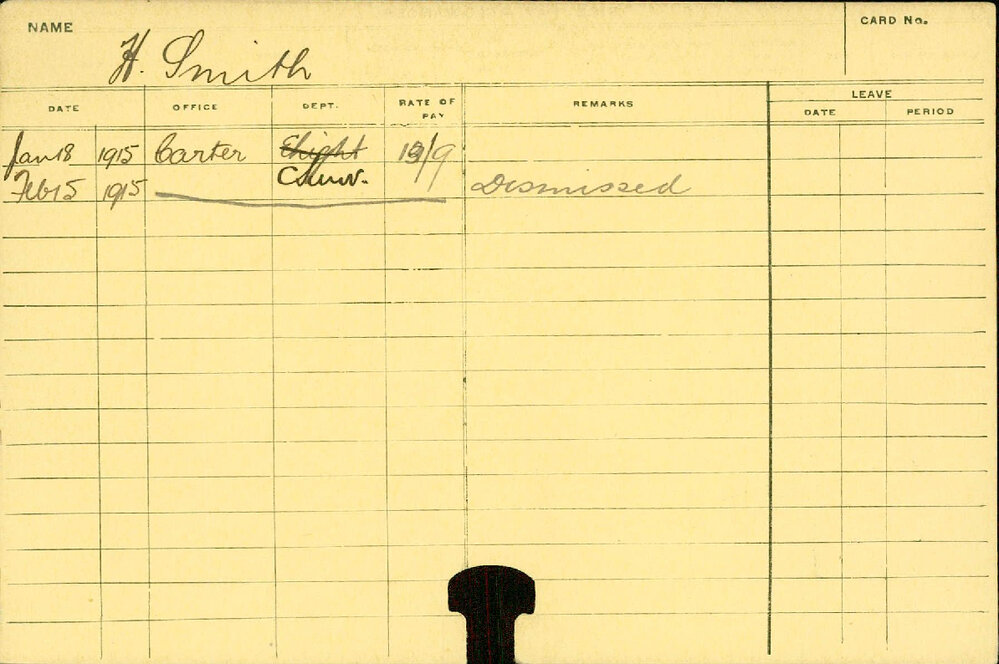 NAME
H. Smith
CARD No.
DATE OFFICE DEPT. RATE OF PAY REMARKS LEAVE
DATE PERIOD
Jan 18 1915 Carter 19/9
Feb 15 1915 Dismissed